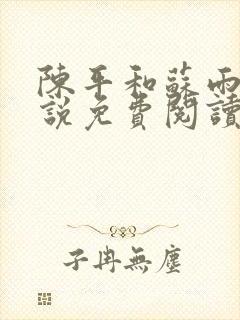 陳平和蘇雨
說免費閱讀
子冉無塵